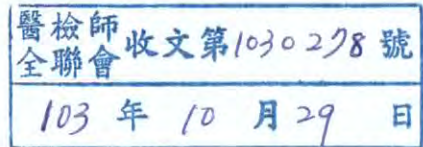 醫檢師全聯會收文第1030278號
103年10月29日